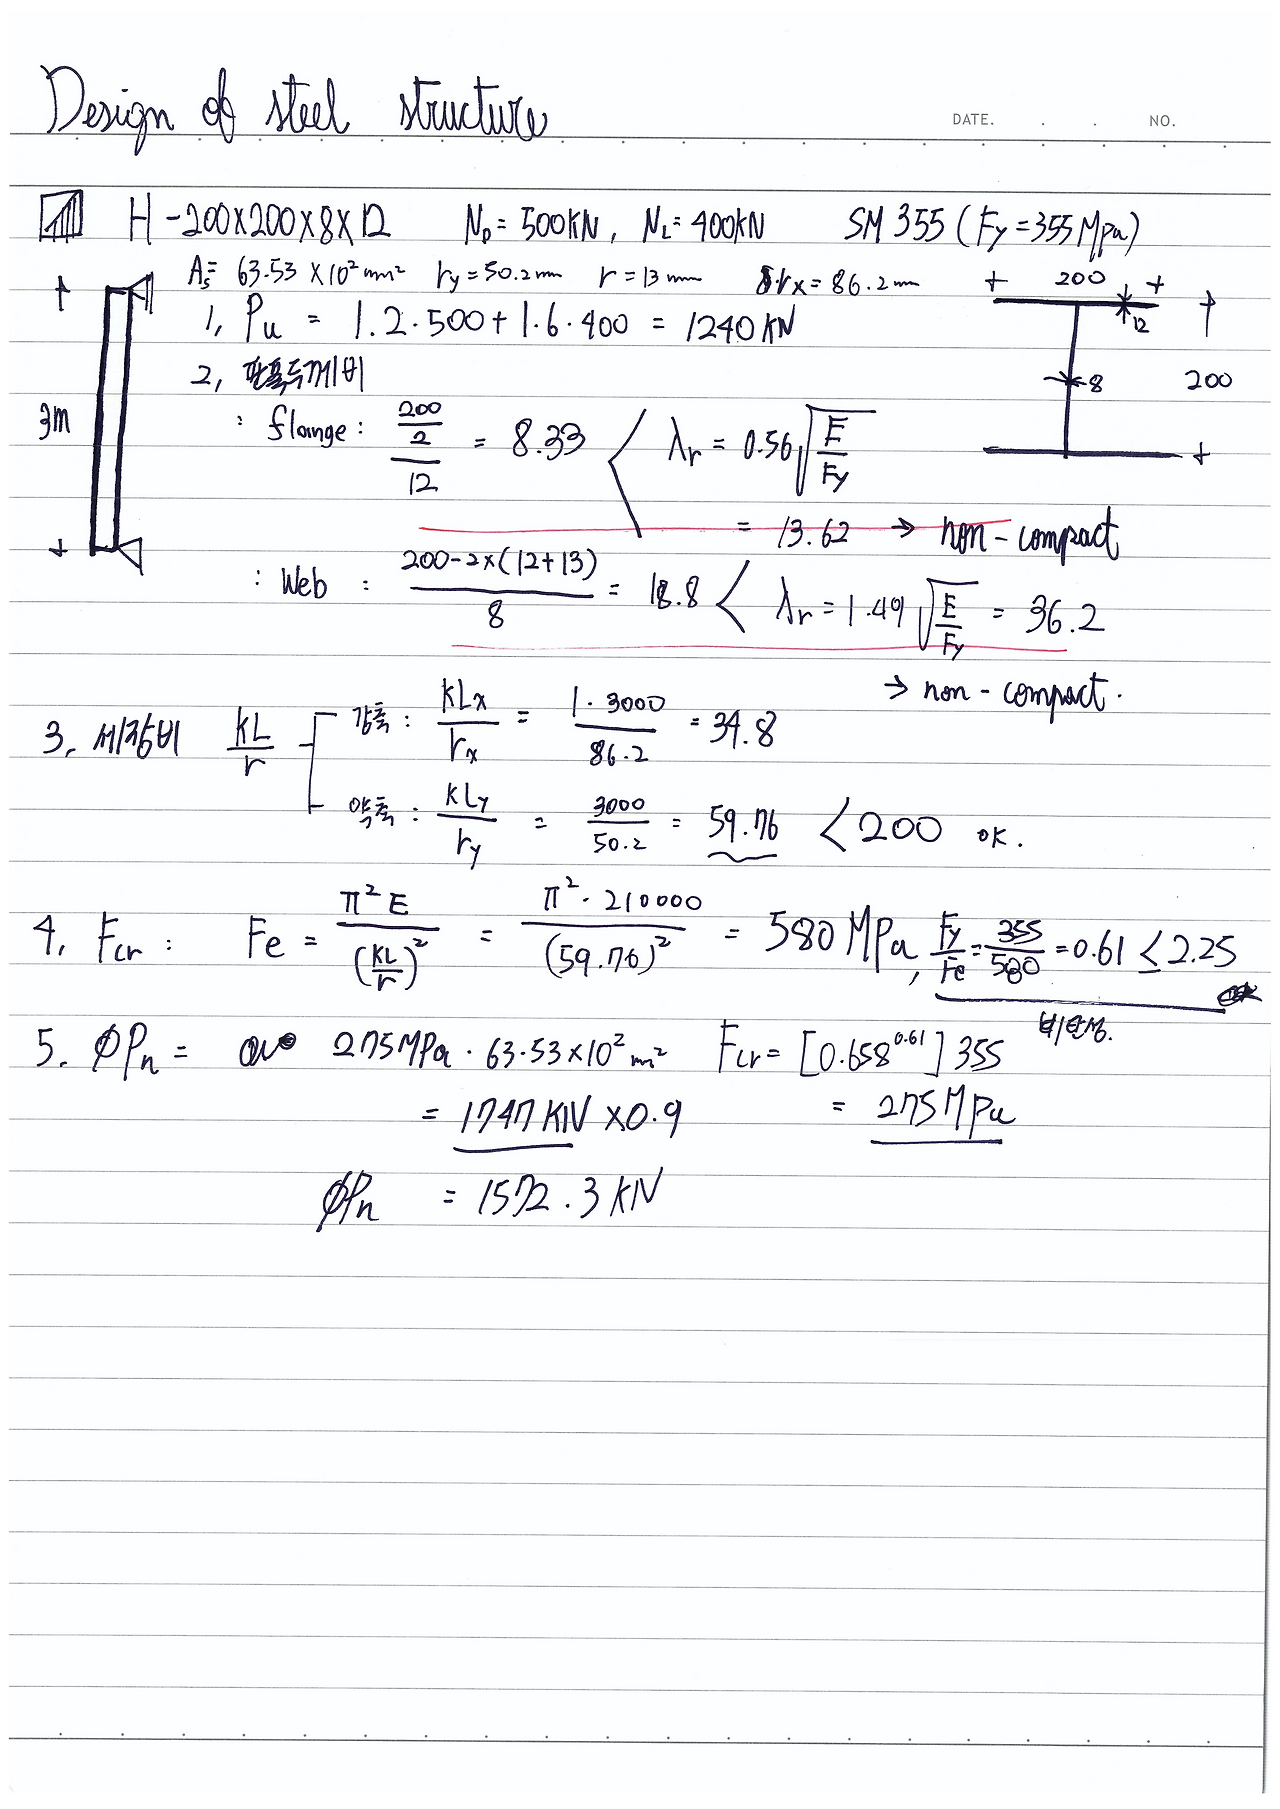 Design of steel structure
DATE. . . NO.
H-200×200×8×12 N_D=500KN, N_L=400KN SM355 (Fy=355MPa)
A_s= 63.53×10² mm² r_y=50.2mm r=13mm r_x=86.2mm
200
12
8
200
3m
1, P_u = 1.2·500+1.6·400 = 1240KN
2, 판폭두께비
: flange: (200/2)/12 = 8.33 < λr = 0.56√(E/Fy)
= 13.62 → non-compact
: Web : (200-2×(12+13))/8 = 18.8 < λr=1.49√(E/Fy) = 36.2
→ non-compact.
3, 세장비 KL/r 강축: KLx/rx = 1·3000/86.2 = 34.8
약축: KLy/ry = 3000/50.2 = 59.76 < 200 OK.
4, Fcr: Fe = π²E/(KL/r)² = π²·210000/(59.76)² = 580MPa, Fy/Fe=355/580=0.61≤2.25
비탄성.
5. ØPn = 275MPa·63.53×10² m² Fcr=[0.658^0.61]355
= 1747KN×0.9 = 275MPa
ØPn = 1572.3KN